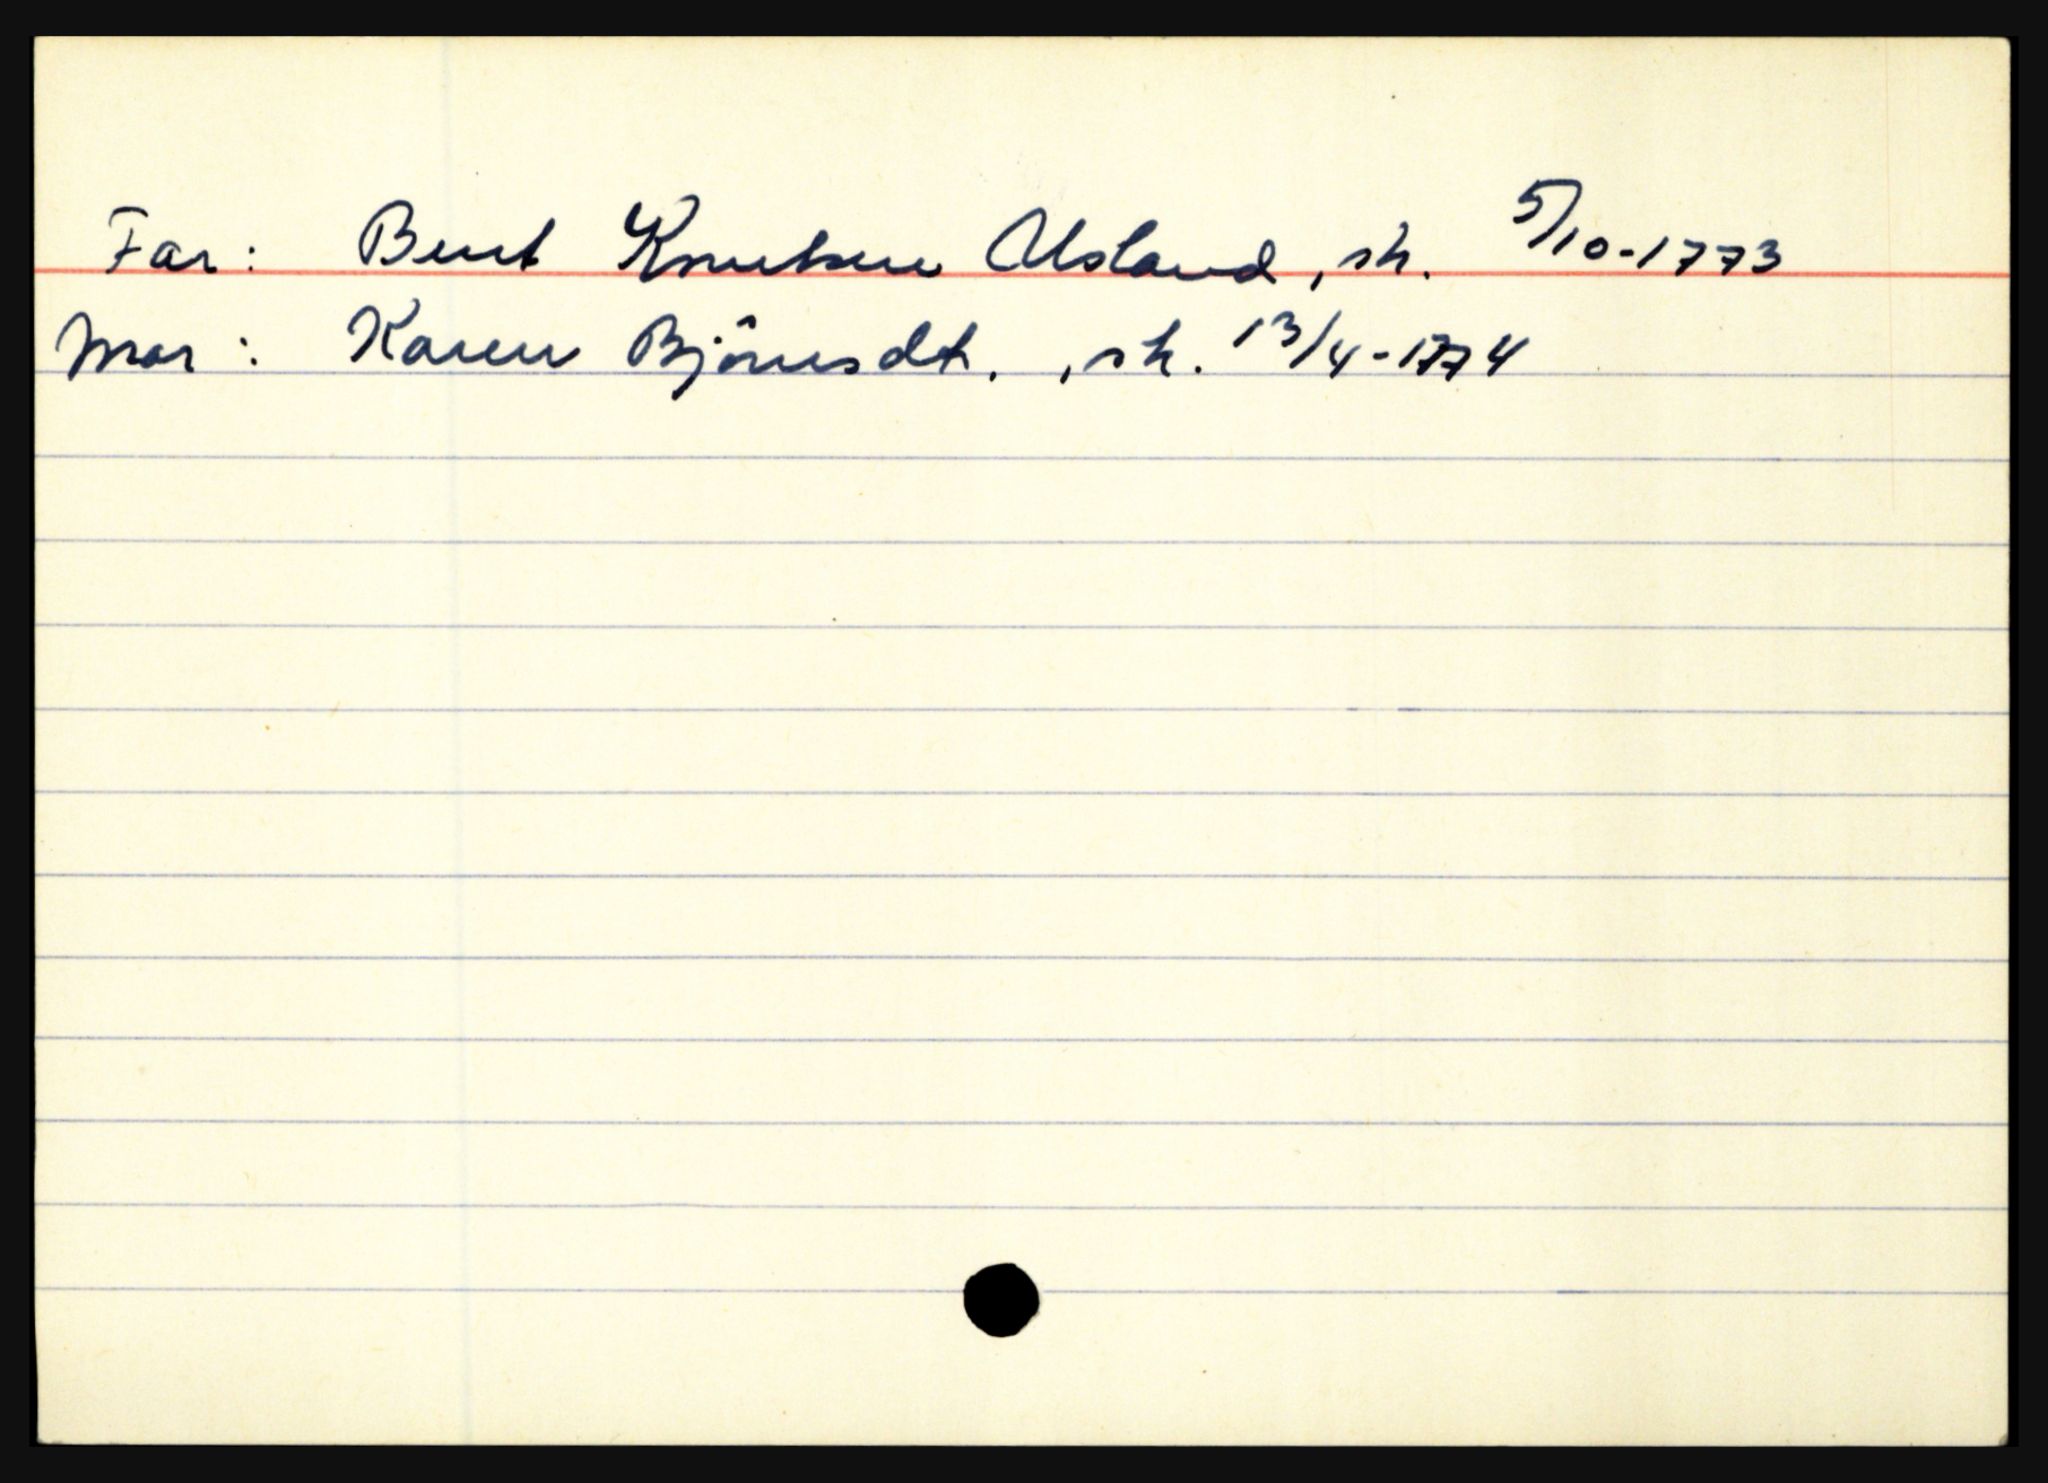 Far: Bent Knutsen Usland, sk. 5/10-1773
Mor: Karen Björnsdt., sk. 13/4-1774